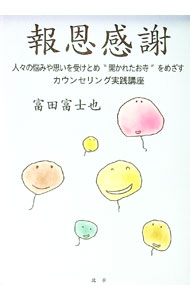 報恩感謝
人々の悩みや思いを受けとめ〝開かれたお寺〟をめざす
カウンセリング実践講座
富田富士也